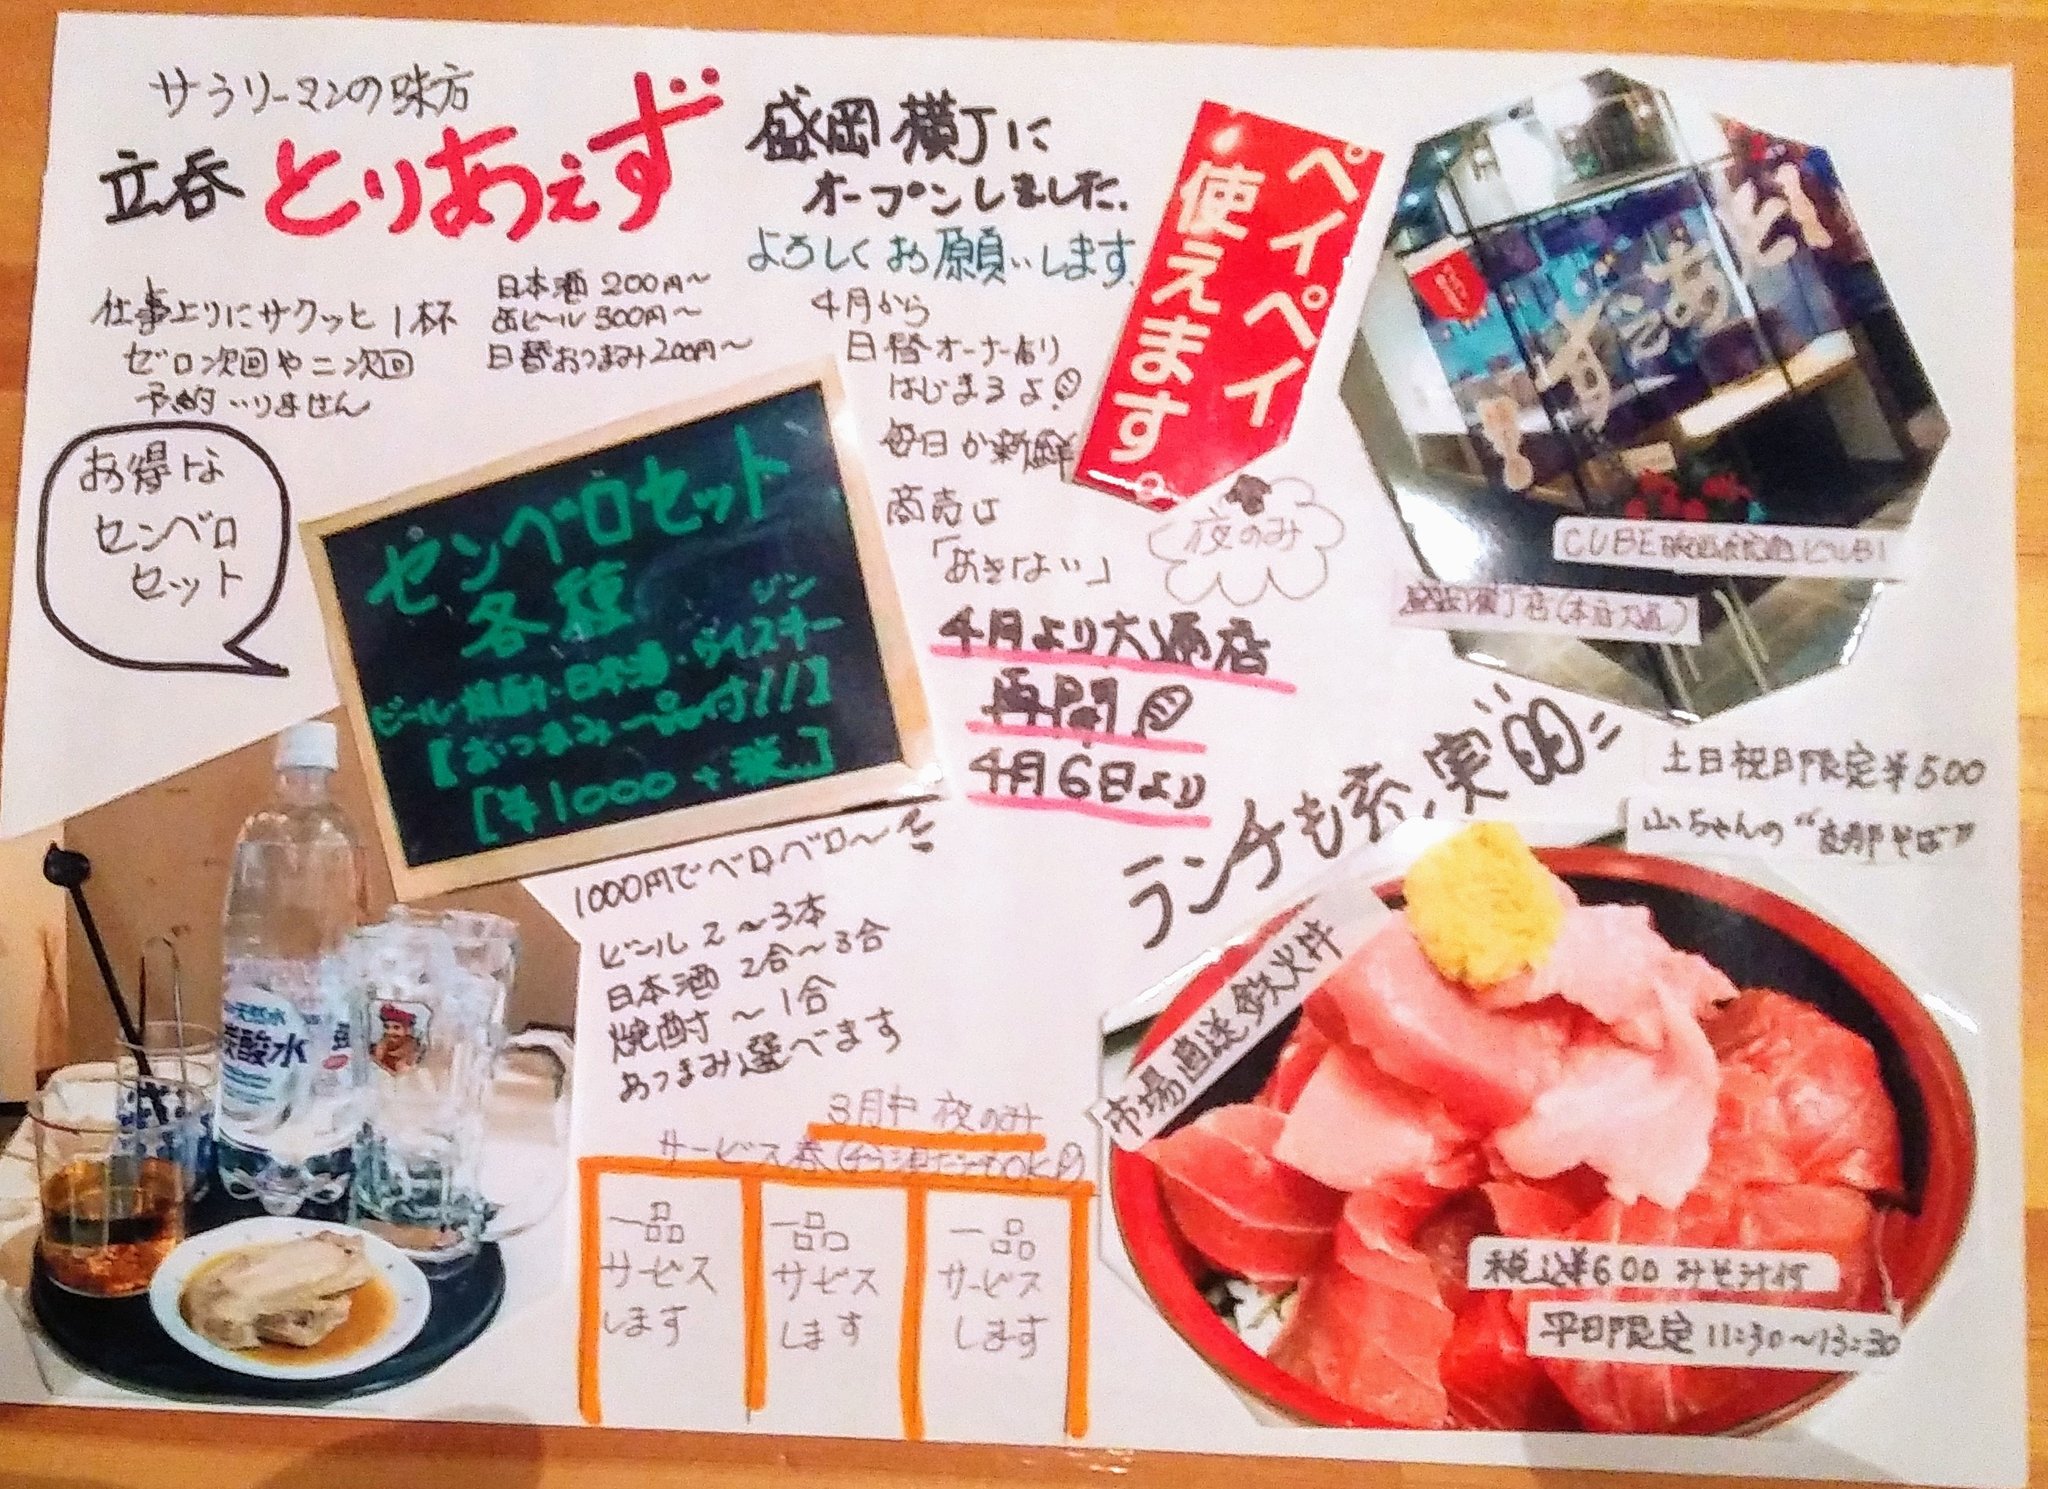 サラリーマンの味方
立呑 とりあえず
盛岡横丁に
オープンしました.
よろしくお願いします.
仕事上りにサクッと1杯
ゼロ次回や二次回
予約いりません
日本酒 200円〜
缶ビール 300円〜
日替おつまみ200円〜
4月から
日替オーナー有り
はじまるよ.
毎日が新鮮
商売は
「あきない」
ペイペイ
使えます。
お得な
センベロ
セット
センベロセット
各種
ジン
ビール・焼酎・日本酒・ウイスキー
【おつまみ一品付!!】
[¥1000+税]
夜のみ
4月より大通店
再開
4月6日より
とりあえず
盛岡横丁店(本店大通)
ランチも充実的
土日祝日限定¥500
山ちゃんの
市場直送鉄火丼
税込¥600みそ汁付
平日限定11:30〜13:30
1000円でベロベロ〜
ビール2〜3本
日本酒 2合〜3合
焼酎 〜1合
おつまみ選べます
3月中 夜のみ
サービス券
一品
サービス
します
一品
サービス
します
一品
サービス
します
天然水
炭酸水